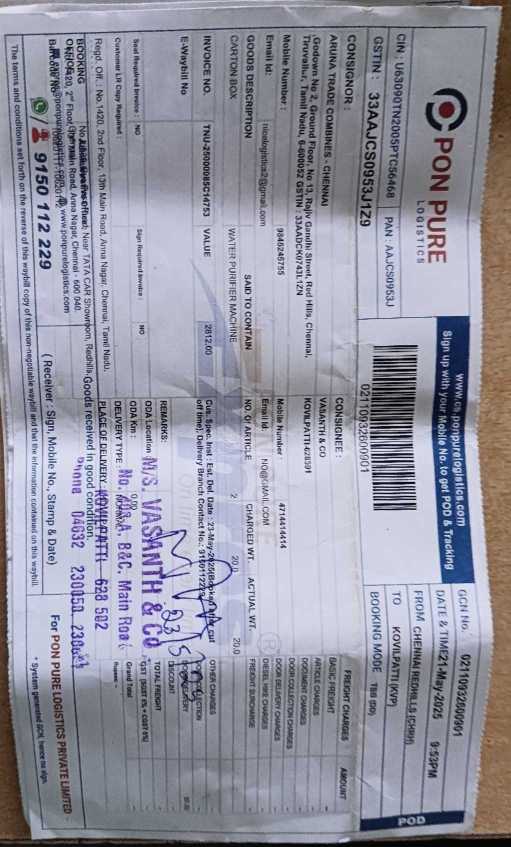 PON PURE
LOGISTICS
www.cs.ponpurelogistics.com
Sign up with your Mobile No. to get POD & Tracking
CIN : U63090TN2005PTC56468 PAN : AAJCS0953J
GSTIN : 33AAJCS0953J1Z9
02110932600901
GCN No. 02110932600901
DATE & TIME 21-May-2025 9:53PM
FROM CHENNAI REDHILLS (CHRH)
TO KOVILPATTI (KVP)
BOOKING MODE TBB (DD)
POD
CONSIGNOR :
ARUNA TRADE COMBINES - CHENNAI
,Godown No 2, Ground Floor, No 13, Rajiv Gandhi Street, Red Hills, Chennai,
Tiruvallur, Tamil Nadu, 6-600052 GSTIN : 33AADCK0743L1ZN
Mobile Number : 9840245755
Email Id: nicelogistics2@gmail.com
CONSIGNEE :
VASANTH & CO
KOVILPATTI-628501
Mobile Number 4714414414
Email Id NO@GMAIL.COM
GOODS DESCRIPTION SAID TO CONTAIN NO. Of ARTICLE CHARGED WT. ACTUAL WT.
CARTON BOX WATER PURIFIER MACHINE 2 20.0 20.0
INVOICE NO. TNU-25000085C14753 VALUE 2812.00
E-Waybill No
Seal Required Invoice : NO Sign Required Invoice : NO
Customer LR Copy Required :
Cus. Spec. Inst : Est. Del. Date : 23-May-2025(Booked after cut
off time) ; Delivery Branch Contact No.: 9150112229
REMARKS:
ODA Location
ODA Km : 0.00
DELIVERY TYPE : NORMAL
PLACE OF DELIVERY : KOVILPATTI
M/S. VASANTH & CO
B&C. Main Road
628 502
Phone 04632 230050
FREIGHT CHARGES AMOUNT
BASIC FREIGHT
ARTICLE CHARGES
DOCUMENT CHARGES
DOOR COLLECTION CHARGES
DOOR DELIVERY CHARGES
DIESEL HIKE CHARGES
FREIGHT SURCHARGE
OTHER CHARGES
DISCOUNT
TOTAL FREIGHT
Grand Total
Rupees -
Regd. Off. : No.1420, 2nd Floor, 13th Main Road, Anna Nagar, Chennai, Tamil Nadu,
BOOKING
Near TATA CAR Showroom, Redhills,
Goods received in good condition.
Main Road, Anna Nagar, Chennai - 600 040.
www.ponpurelogistics.com
9150 112 229
( Receiver : Sign, Mobile No., Stamp & Date)
For PON PURE LOGISTICS PRIVATE LIMITED
* System generated GCN, hence no sign.
The terms and conditions set forth on the reverse of this waybill copy of this non-negotiable waybill and that the information contained on this waybill.